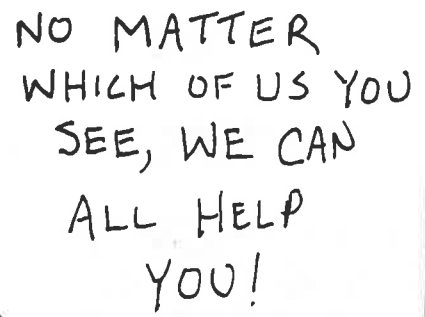 NO MATTER
WHICH OF US YOU
SEE, WE CAN
ALL HELP
YOU!